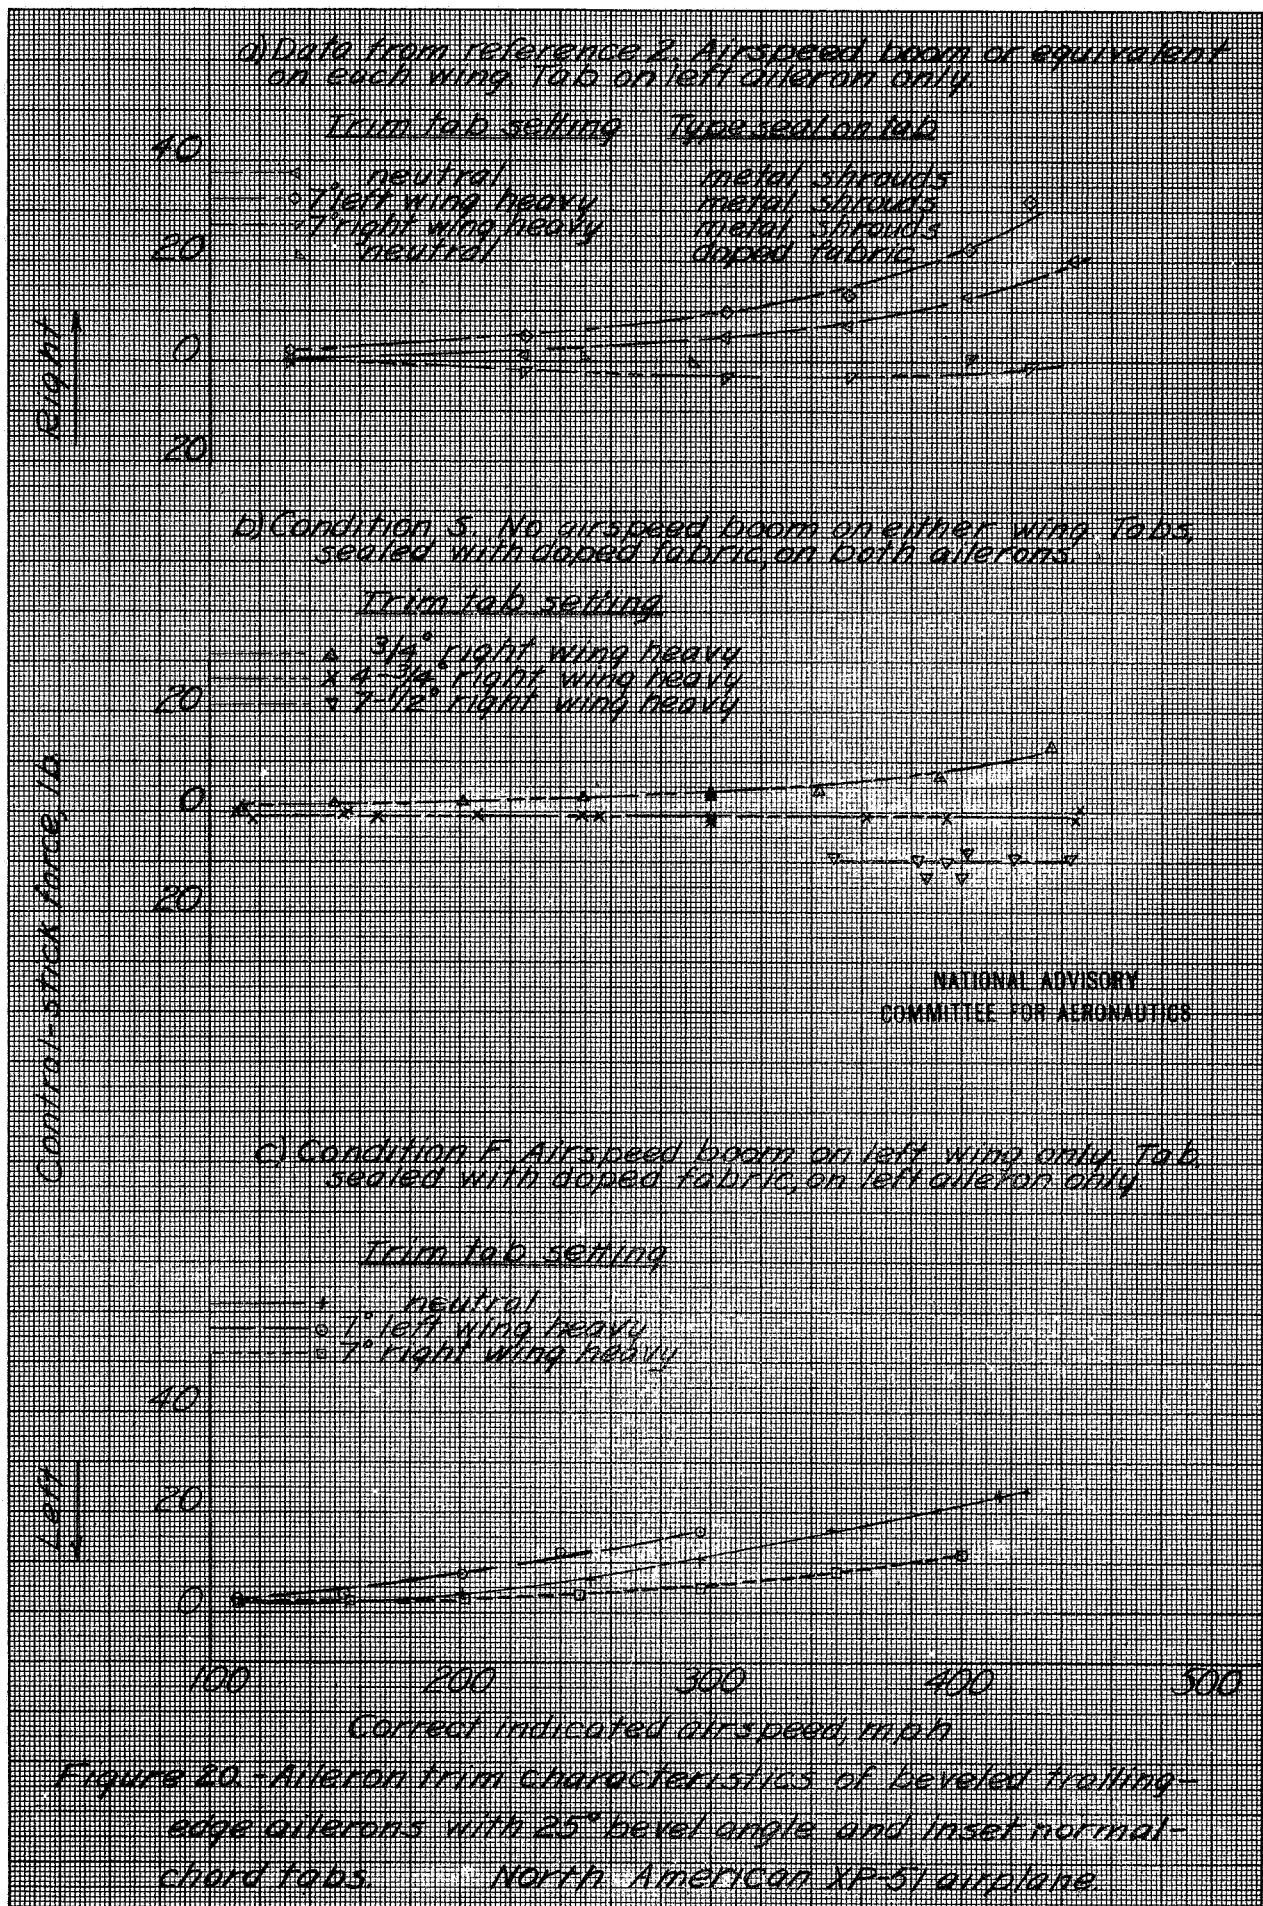 a) Data from reference 2. Airspeed boom or equivalent
on each wing. Tab on left aileron only.
Trim tab setting Type seal on tab
40
neutral metal shrouds
7° left wing heavy metal shrouds
7° right wing heavy metal shrouds
20
neutral doped fabric
0
Right
20
b) Condition 5. No airspeed boom on either wing. Tabs,
sealed with doped fabric, on both ailerons.
Trim tab setting
3/4° right wing heavy
4-3/4° right wing heavy
20
7-1/2° right wing heavy
0
20
Control-stick force, lb.
NATIONAL ADVISORY
COMMITTEE FOR AERONAUTICS
c) Condition F. Airspeed boom on left wing only. Tab,
sealed with doped fabric, on left aileron only
Trim tab setting
neutral
7° left wing heavy
7° right wing heavy
40
20
Left
0
100 200 300 400 500
Correct indicated airspeed, mph
Figure 20. - Aileron trim characteristics of beveled trailing-
edge ailerons with 25° bevel angle and inset normal-
chord tabs. North American XP-51 airplane.